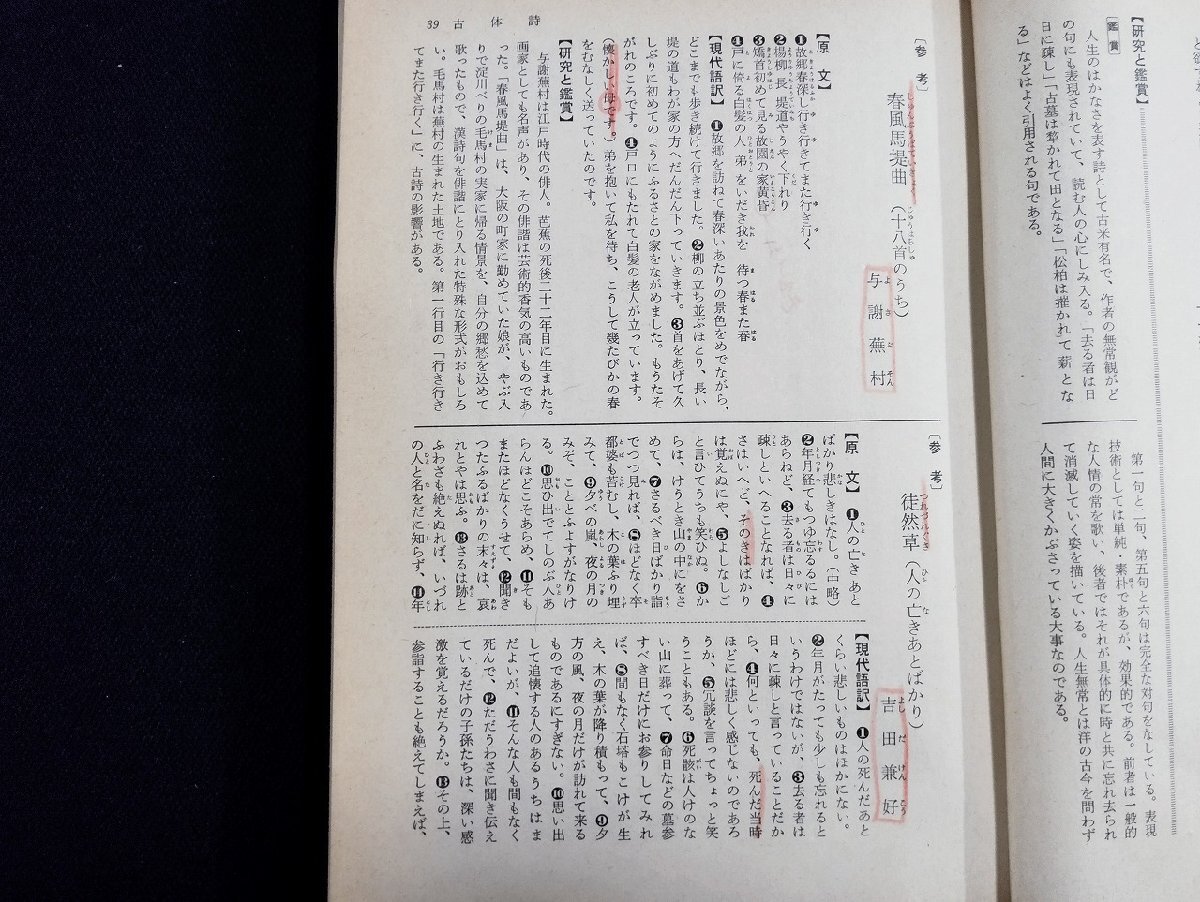 と欲す
【研究と鑑賞】
〔鑑賞〕
人生のはかなさを表す詩として古来有名で、作者の無常観がど
の句にも表現されていて、読む人の心にしみ入る。「去る者は日
日に疎し」「古墓は犂かれて田となる」「松柏は摧かれて薪とな
る」などはよく引用される句である。
第一句と二句、第五句と六句は完全な対句をなしている。表現
技術としては単純・素朴であるが、効果的である。前者は一般的
な人情の常を歌い、後者ではそれが具体的に時と共に忘れ去られ
て消滅していく姿を描いている。人生無常とは洋の古今を問わず
人間に大きくかぶさっている大事なのである。
39 古体詩
〔参考〕
春風馬堤曲 (十八首のうち)
与謝蕪村
【原文】
❶故郷春深し行き行きてまた行き行く
❷楊柳長堤道やうやく下れり
❸矯首初めて見る故園の家黄昏
❹戸に倚る白髪の人弟をいだき我を 待つ春また春
【現代語訳】 ❶故郷を訪ねて春深いあたりの景色をめでながら、
どこまでも歩き続けて行きました。❷柳の立ち並ぶほとり、長い
堤の道もわが家の方へだんだん下っていきます。❸首をあげて久
しぶりに初めてのようにふるさとの家をながめました。もうたそ
がれのころです。❹戸口にもたれて白髪の老人が立っています。
(懐かしい母です。)弟を抱いて私を待ち、こうして幾たびかの春
をむなしく送っていたのです。
【研究と鑑賞】
与謝蕪村は江戸時代の俳人。芭蕉の死後二十二年目に生まれた。
画家としても名声があり、その俳諧は芸術的香気の高いものであ
った。「春風馬堤曲」は、大阪の町家に勤めていた娘が、やぶ入
りで淀川べりの毛馬村の実家に帰る情景を、自分の郷愁を込めて
歌ったもので、漢詩句を俳諧にとり入れた特殊な形式がおもしろ
い。毛馬村は蕪村の生まれた土地である。第一行目の「行き行き
てまた行き行く」に、古詩の影響がある。
〔参考〕
徒然草(人の亡きあとばかり)
吉田兼好
【原文】 ❶人の亡きあと
ばかり悲しきはなし。(中略)
❷年月経てもつゆ忘るるには
あらねど、❸去る者は日々に
疎しといへることなれば、❹
さはいへど、そのきはばかり
は覚えぬにや、❺よしなしご
と言ひてうちも笑ひぬ。❻か
らは、けうとき山の中にをさ
めて、❼さるべき日ばかり詣
でつつ見れば、❽ほどなく卒
都婆も苔むし、木の葉ふり埋
みて、❾夕べの嵐、夜の月の
みぞ、こととふよすがなりけ
る。❿思ひ出でてしのぶ人あ
らんほどこそあらめ、⓫そも
またほどなくうせて、⓬聞き
つたふるばかりの末々は、哀
れとやは思ふ。⓭さるは跡と
ふわざも絶えぬれば、いづれ
の人と名をだに知らず、⓮年
【現代語訳】 ❶人の死んだあと
くらい悲しいものはほかにない。
❷年月がたっても少しも忘れると
いうわけではないが、❸去る者は
日々に疎しと言っていることだか
ら、❹何といっても、死んだ当時
ほどには悲しく感じないのであろ
うか、❺冗談を言ってちょっと笑
うこともある。❻死骸は人けのな
い山に葬って、❼命日などの墓参
すべき日だけにお参りしてみれ
ば、❽間もなく石塔もこけが生
え、木の葉が降り積もって、❾夕
方の風、夜の月だけが訪れて来る
ものであるにすぎない。❿思い出
して追懐する人のあるうちはま
だよいが、⓫そんな人も間もなく
死んで、⓬ただうわさに聞き伝え
ているだけの子孫たちは、深い感
激を覚えるだろうか。⓭その上、
参詣することも絶えてしまえば、